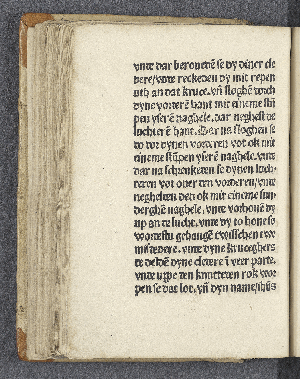 vnte dar beroueten se dy diner cle
dere/vnte reckeden dy mit repen
vth an dat kruce. vñ sloghē doch
dyne vorderē hant mit eineme stū
pen yserē naghele. dar neghest de
luchterē hant. Dar na sloghen se
to dor dynen vorderen vot ok mit
eineme stūpen yserē naghele. vnte
dar na schrenketen se dynen luch
teren vot ouer den vorderen/vnte
neghelten den ok mit eineme sun
derghē naghele. vnte vorhouē dy
up an te lucht. vnte dy to hone so
worestu gehangē twisschen twe
misdedere. vnte dyne kruceghers
te deldē dyne cledere ī veer parte.
vnte uppe den knutteten rok wor
pen se dat lot. vñ dyn name/ihūs